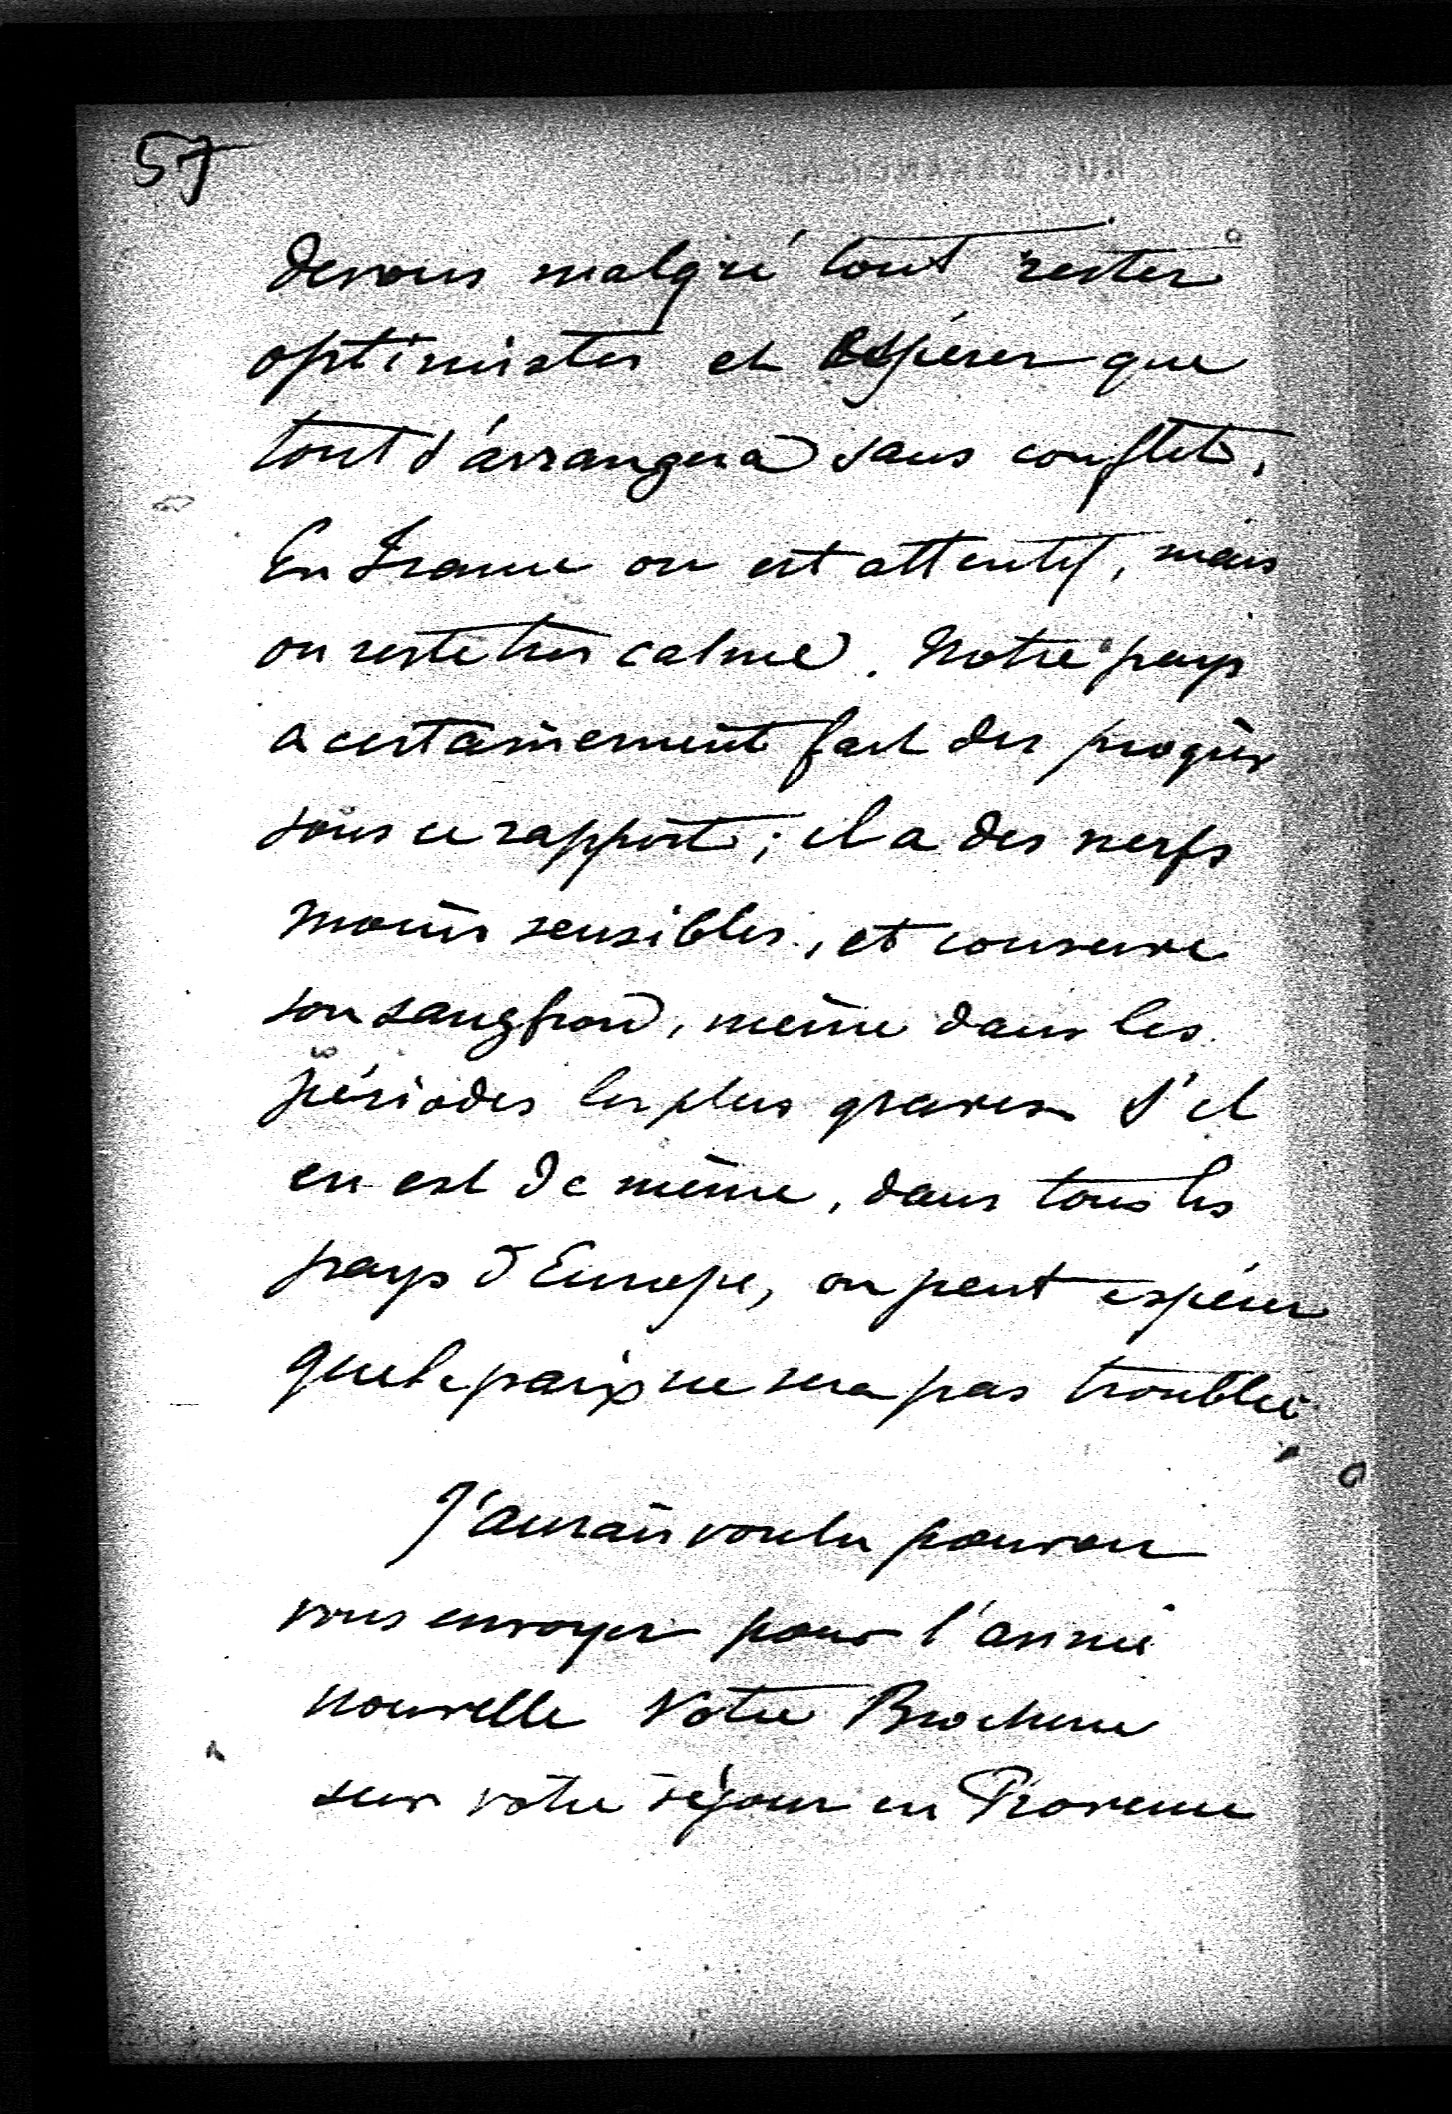 57
devons malgré tout rester
optimistes et espérer que
tout s'arrangera sans conflit.
En France on est attentif, mais
on reste très calme. Notre pays
a certainement fait des progrès
sous ce rapport; il a des nerfs
moins sensibles, et conserve
son sangfroid, même dans les
périodes les plus graves. S'il
en est de même, dans tous les
pays d'Europe, on peut espérer
que la paix ne sera pas troublée.
J'aurais voulu pouvoir
vous envoyer pour l'année
nouvelle Votre Brochure
sur votre séjour en Provence